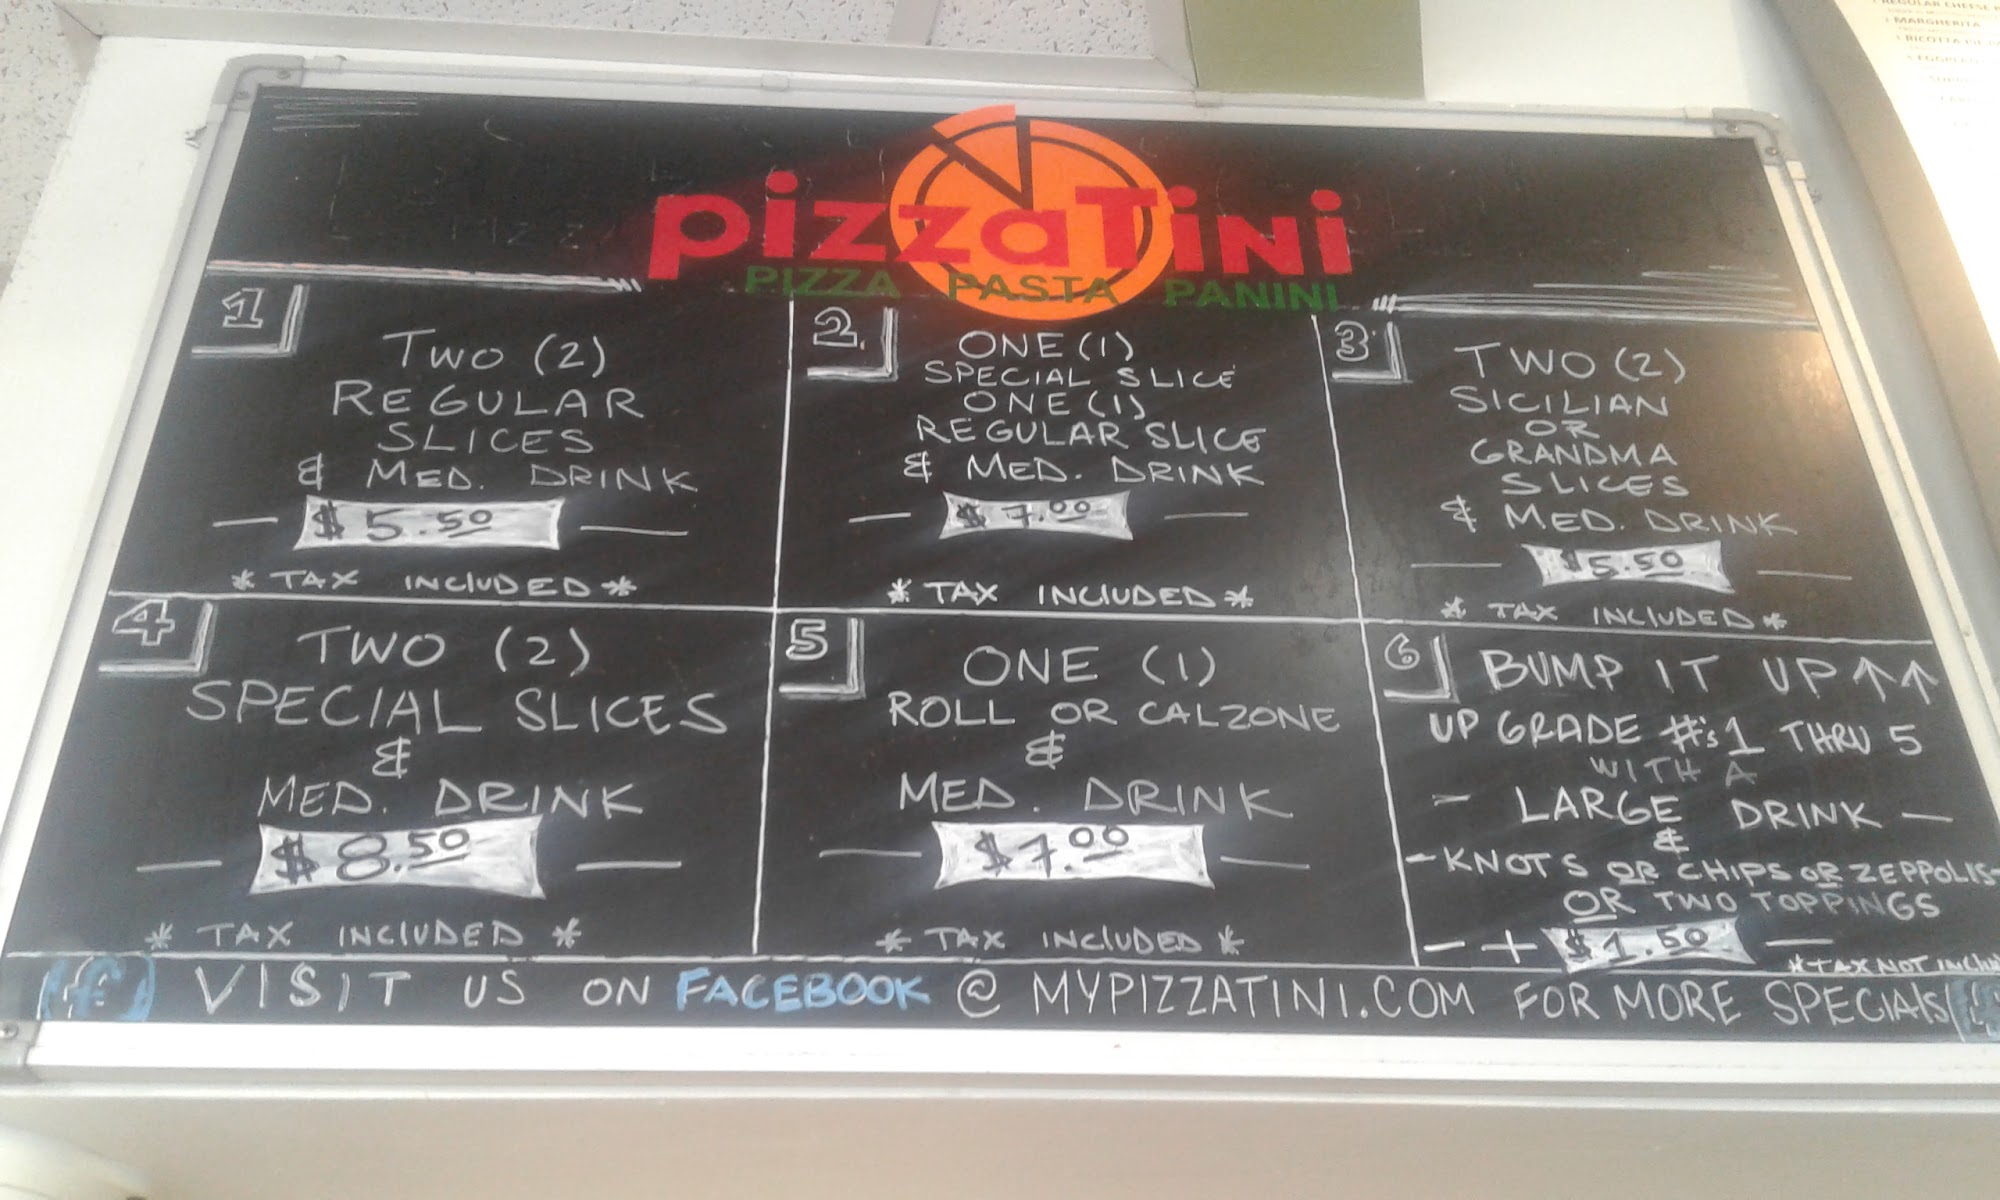 pizzaTini
PIZZA PASTA PANINI
1
TWO (2)
REGULAR
SLICES
& MED. DRINK
$5.50
* TAX INCLUDED *
2.
ONE (1)
SPECIAL SLICE
ONE (1)
REGULAR SLICE
& MED. DRINK
$7.00
* TAX INCLUDED *
3
TWO (2)
SICILIAN
OR
GRANDMA
SLICES
& MED. DRINK
$5.50
* TAX INCLUDED *
4
TWO (2)
SPECIAL SLICES
&
MED. DRINK
$8.50
* TAX INCLUDED *
5
ONE (1)
ROLL OR CALZONE
&
MED. DRINK
$7.00
* TAX INCLUDED *
6
BUMP IT UP ↑↑
UP GRADE #'s 1 THRU 5
WITH A
- LARGE DRINK -
&
- KNOTS OR CHIPS OR ZEPPOLIS -
OR TWO TOPPINGS
- + $1.50 -
* TAX NOT
f VISIT US ON FACEBOOK @ MYPIZZATINI.COM FOR MORE SPECIALS
REGULAR CHEESE
MARGHERITA